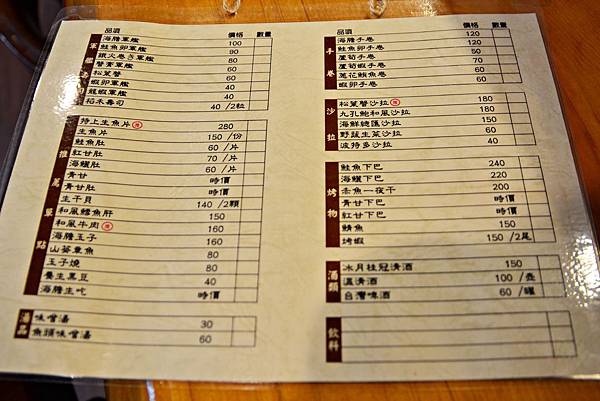 品項 價格 數量
軍艦壽司
海膽軍艦 100
鮭魚卵軍艦 90
鐵火卷き軍艦 80
蟹膏軍艦 60
松葉蟹 60
蝦卵軍艦 40
龍蝦軍艦 40
稻禾壽司 40 /2粒
推薦單點
特上生魚片 280
生魚片 150 /份
鮭魚肚 60 /片
紅甘肚 70 /片
海鱺肚 60 /片
青甘 時價
青甘肚 時價
生干貝 140 /2顆
和風鱈魚肝 150
和風牛肉 160
海膽玉子 160
山葵章魚 80
玉子燒 80
養生黑豆 40
海膽生吃 時價
湯品
味噌湯 30
魚頭味噌湯 60
品項 價格 數量
手卷
海膽手卷 120
鮭魚卵手卷 120
蘆筍手卷 50
蘆筍蝦手卷 70
蔥花鮪魚卷 60
蝦卵手卷 60
沙拉
松葉蟹沙拉 180
九孔鮑和風沙拉 180
海鮮總匯沙拉 150
野蔬生菜沙拉 60
波特多沙拉 40
烤物
鮭魚下巴 240
海鱺下巴 220
赤魚一夜干 200
青甘下巴 時價
紅甘下巴 時價
鯖魚 150
烤蝦 150 /2尾
酒類
冰月桂冠清酒 150
溫清酒 100 /壺
台灣啤酒 60 /罐
飲料